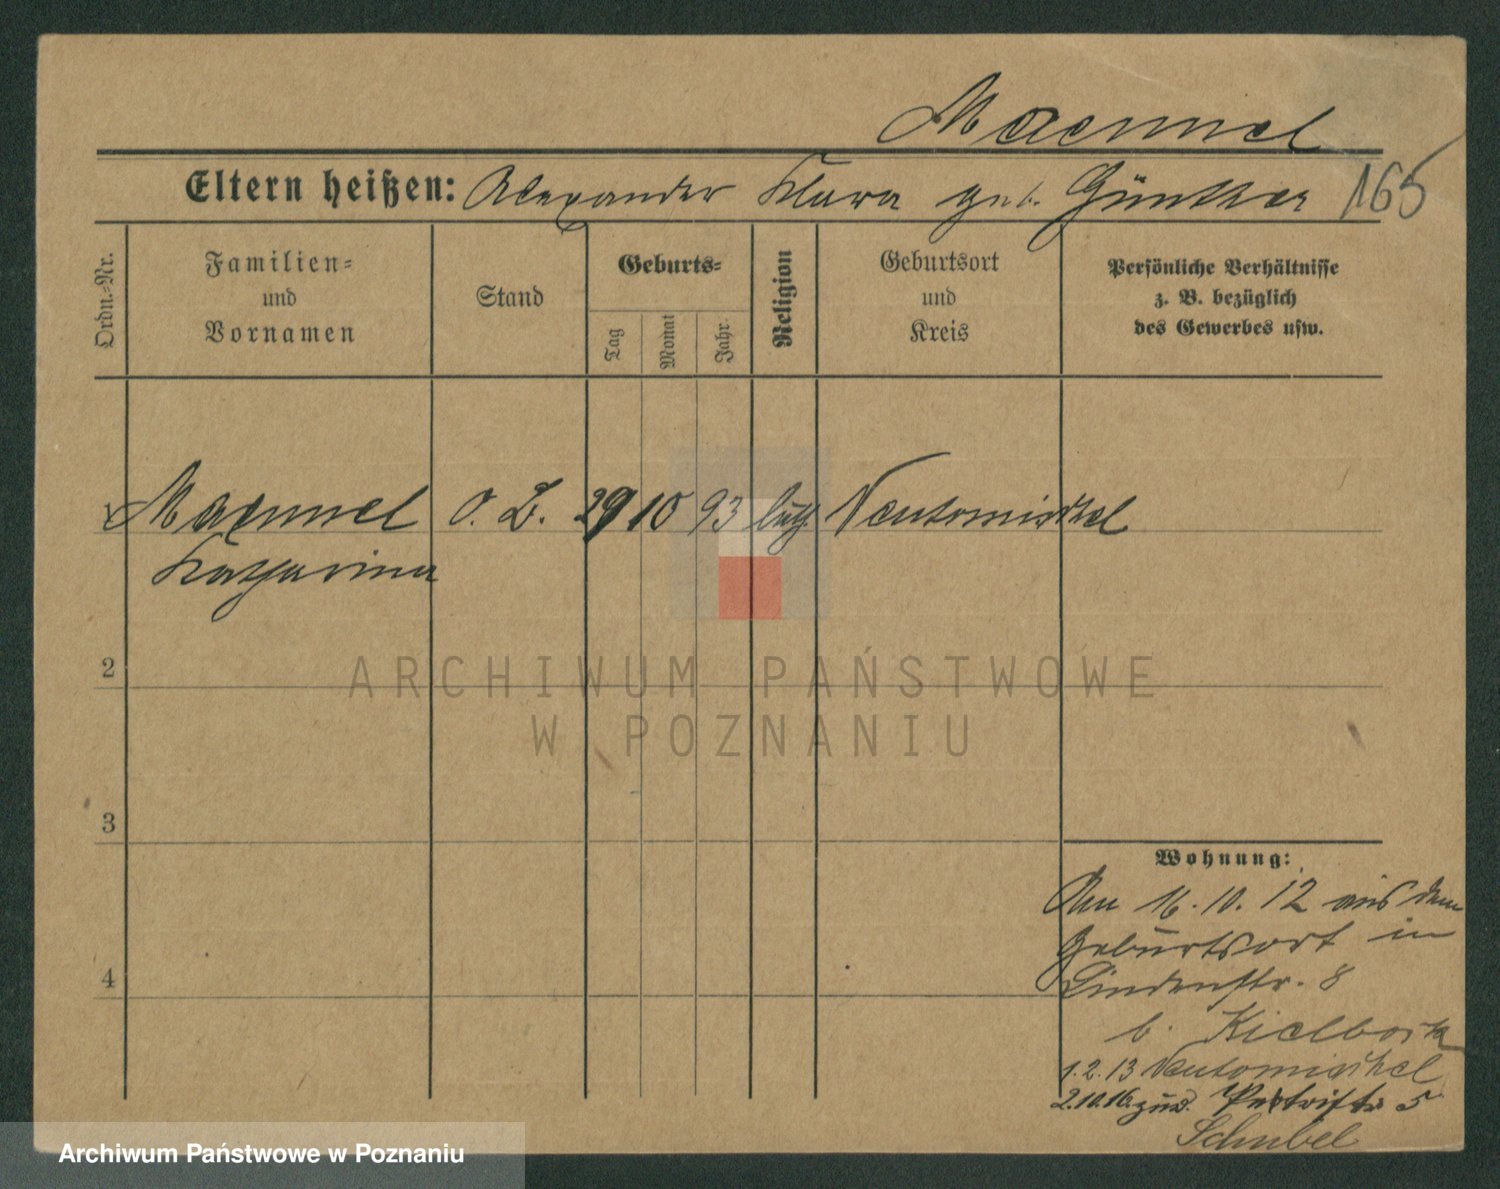 Maennel
Eltern heißen: Alexander Klara geb. Günther 165
Ordn.-Nr.
Familien-
und
Vornamen
Stand
Geburts-
Tag
Monat
Jahr.
Religion
Geburtsort
und
Kreis
Persönliche Verhältnisse
z. B. bezüglich
des Gewerbes usw.
1 Maennel o. B. 29 10 93 luth. Neutomischel
Katharina
2
ARCHIWUM PAŃSTWOWE
W POZNANIU
3
Wohnung:
Am 16.10.12 aus dem
Geburtsort in
4
Lindenstr. 8
b. Kielbock
1.2.13 Neutomischel
2.10.16. zur. 5
Schubel
Archiwum Państwowe w Poznaniu